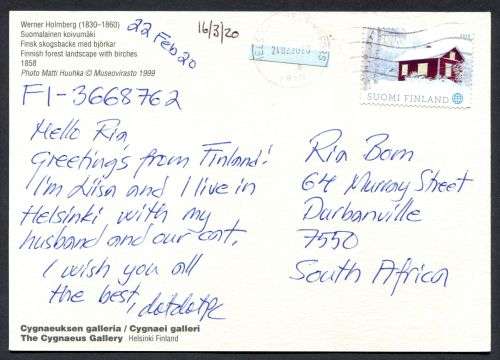 Werner Holmberg (1830–1860)
Suomalainen koivumäki
Finsk skogsbacke med björkar
Finnish forest landscape with birches
1858
Photo Matti Huuhka © Museovirasto 1999
22 Feb 20
16/3/20
SUOMI FINLAND
FI-3668762
Hello Ria
Greeting's from Finland!
I'm Liisa and I live in
Helsinki with my
husband and our cat.
I wish you all
the best,
Ria Bom
64 Murray Street
Durbanville
7550
South Africa
Cygnaeuksen galleria / Cygnaei galleri
The Cygnaeus Gallery Helsinki Finland